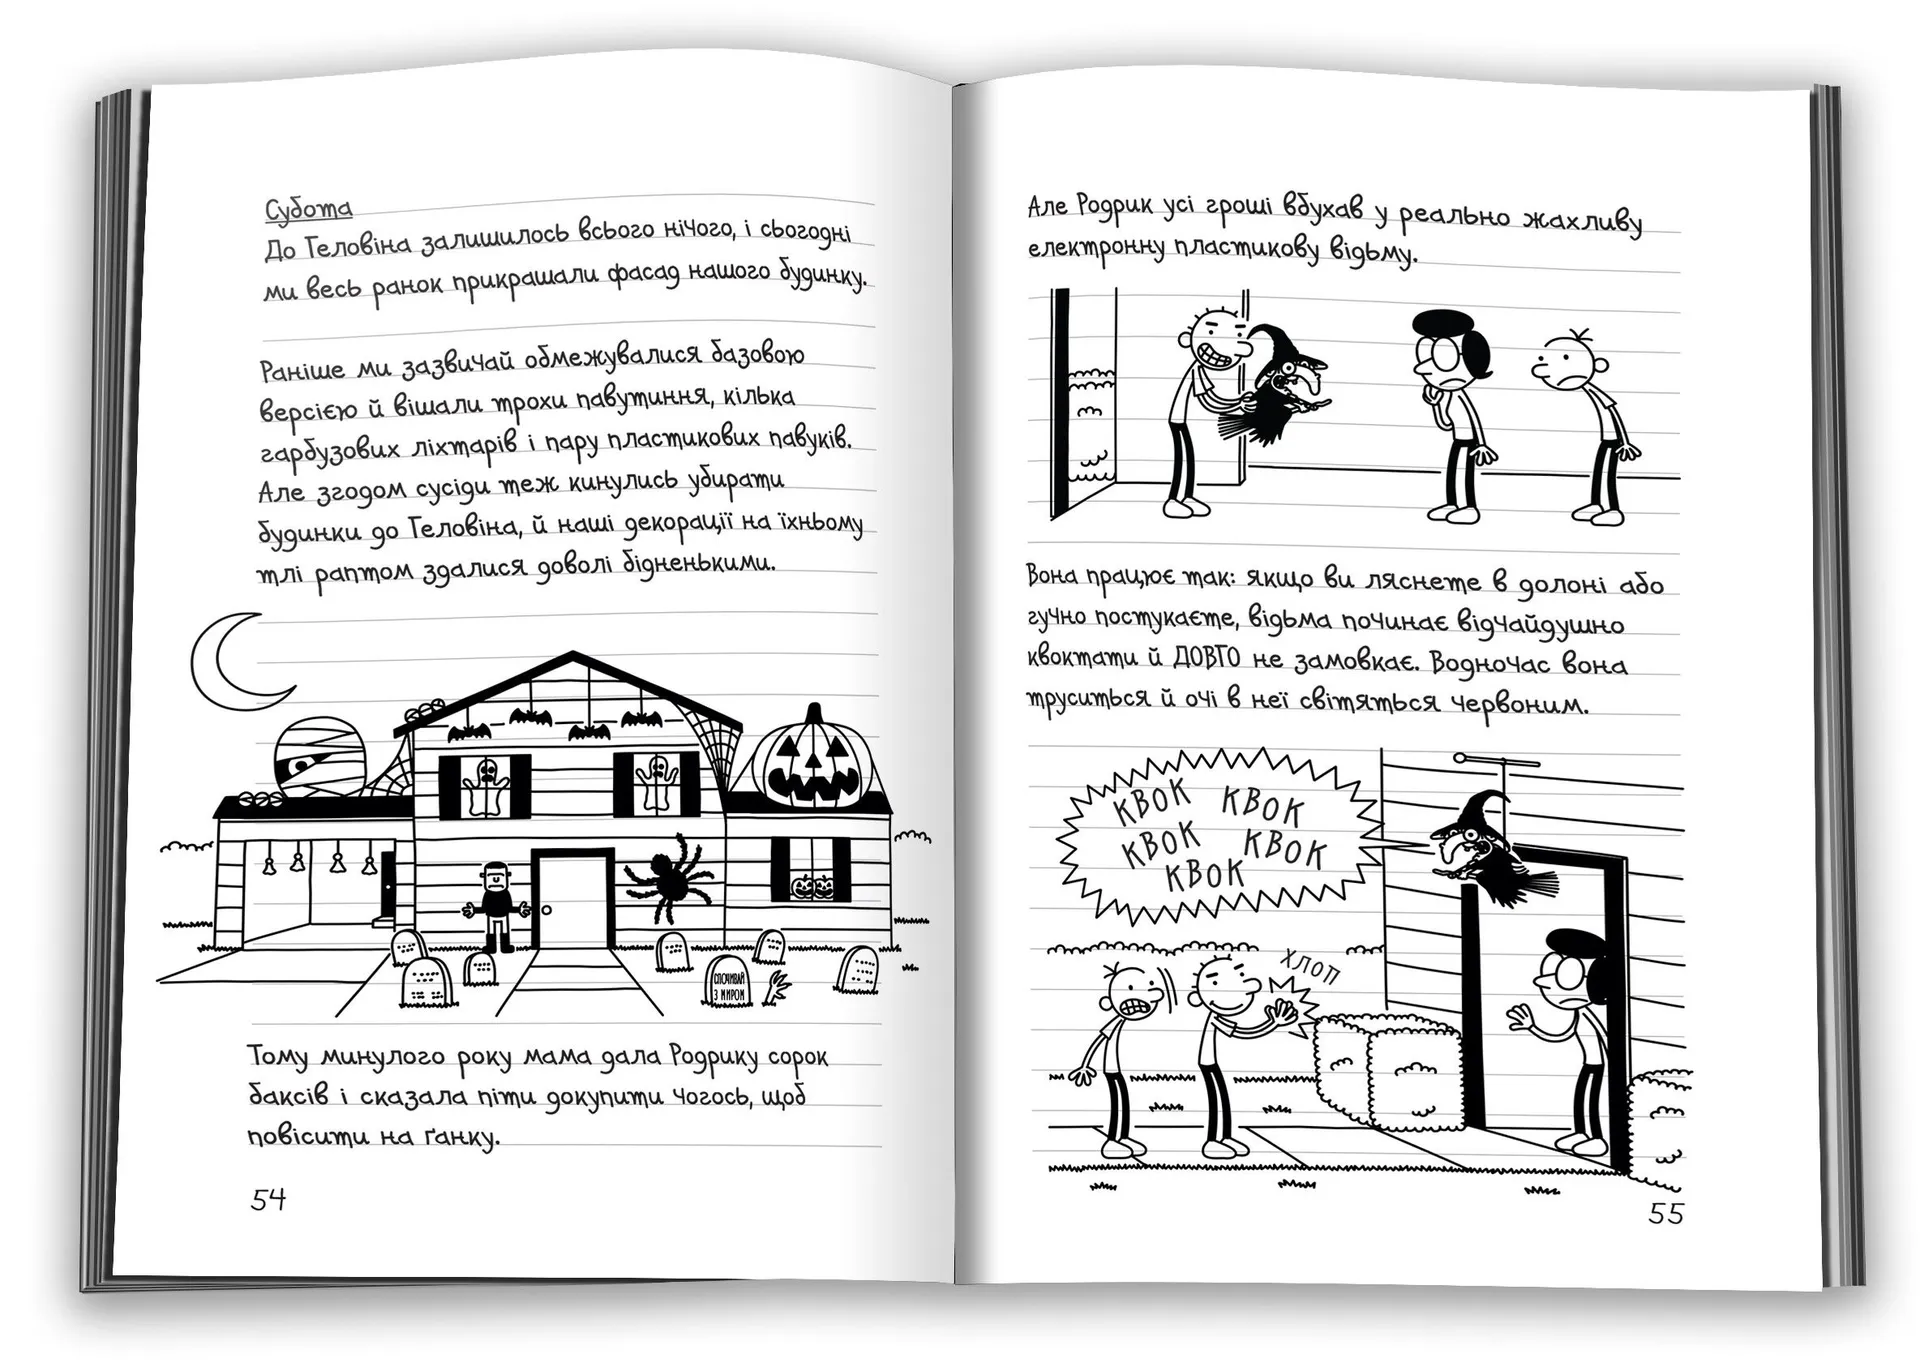 Субота
До Геловіна залишилось всього нічого, і сьогодні
ми весь ранок прикрашали фасад нашого будинку.
Раніше ми зазвичай обмежувалися базовою
версією й вішали трохи павутиння, кілька
гарбузових ліхтарів і пару пластикових павуків.
Але згодом сусіди теж кинулись убирати
будинки до Геловіна, й наші декорації на їхньому
тлі раптом здалися доволі бідненькими.
СПОЧИВАЙ
З МИРОМ
Тому минулого року мама дала Родрику сорок
баксів і сказала піти докупити чогось, щоб
повісити на ґанку.
54
Але Родрик усі гроші вбухав у реально жахливу
електронну пластикову відьму.
Вона працює так: якщо ви ляснете в долоні або
гучно постукаєте, відьма починає відчайдушно
квоктати й ДОВГО не замовкає. Водночас вона
труситься й очі в неї світяться червоним.
КВОК КВОК
КВОК КВОК
КВОК
ХЛОП
55